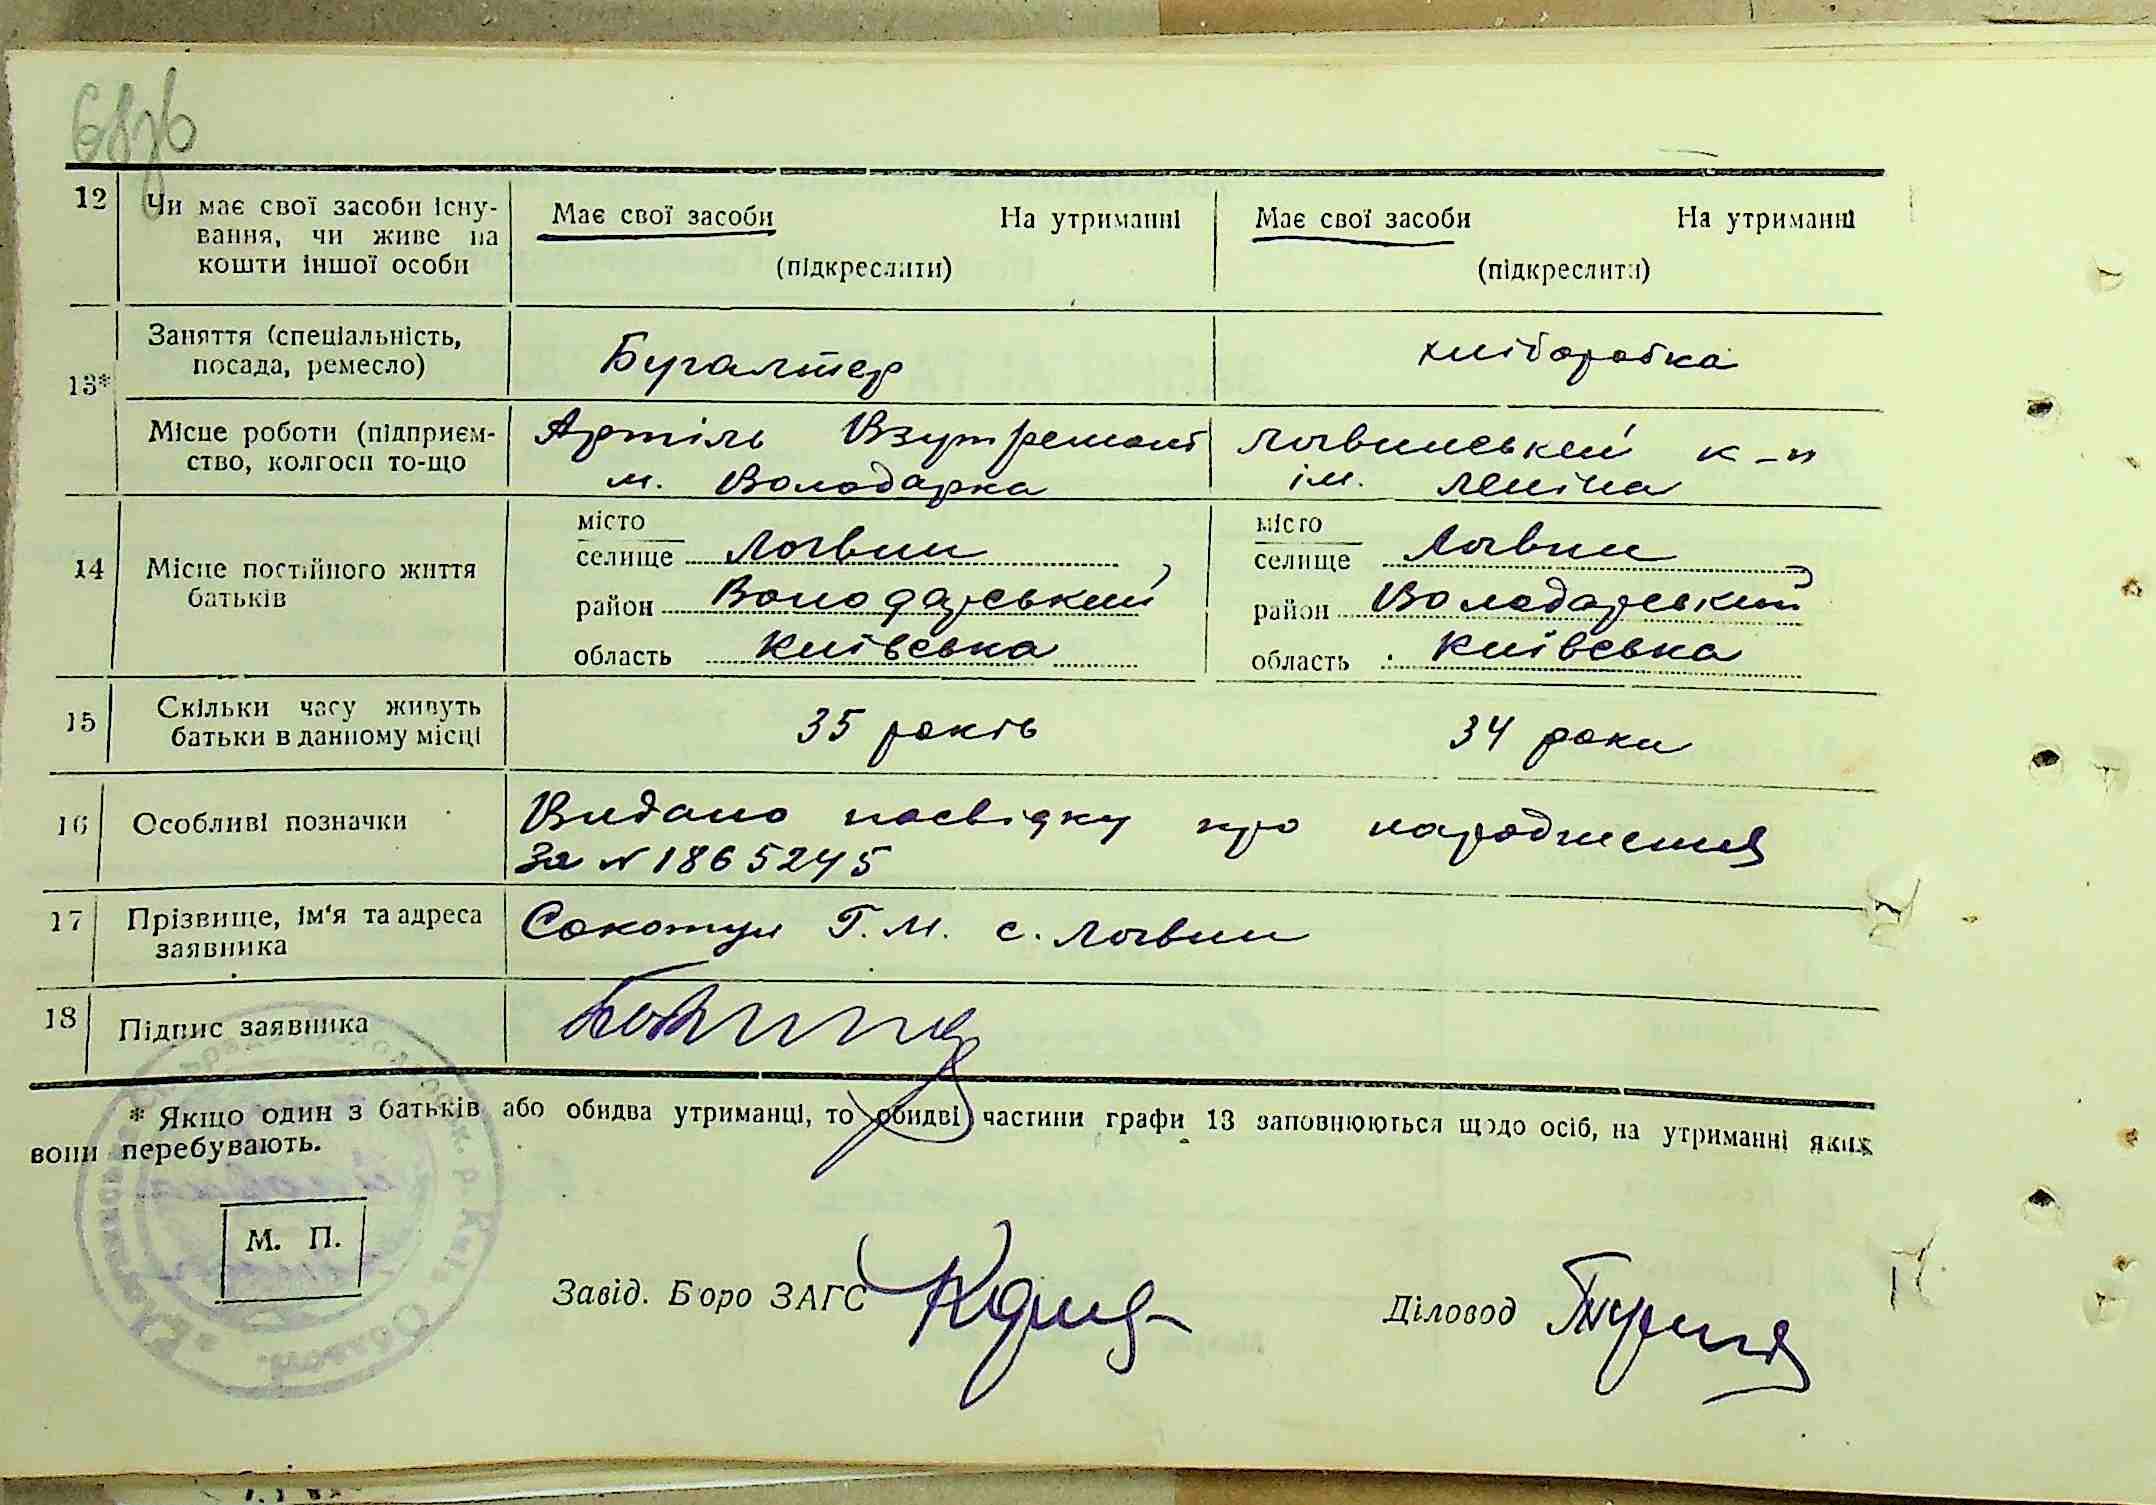 12 Чи має свої засоби існу-
вання, чи живе на
кошти іншої особи
Має свої засоби На утриманні
(підкреслити)
Має свої засоби На утриманні
(підкреслити)
13* Заняття (спеціальність,
посада, ремесло)
Бугалтер
хліборобка
Місце роботи (підприєм-
ство, колгосп то-що
Артіль Взутремонт
м. Володарка
Логвинський к-п
ім. Леніна
14 Місце постійного життя
батьків
місто
селище Логвин
район Володарський
область Київська
місто
селище Логвин
район Володарський
область Київська
15 Скільки часу живуть
батьки в данному місці
35 років
34 роки
16 Особливі позначки
Видано посвідку про народження
за № 1865245
17 Прізвище, ім'я та адреса
заявника
Г. М. с. Логвин
18 Підпис заявника
* Якщо один з батьків або обидва утриманці, то обидві частини графи 13 заповнюються щодо осіб, на утриманні яких
вони перебувають.
М. П.
Завід. Боро ЗАГС
Діловод